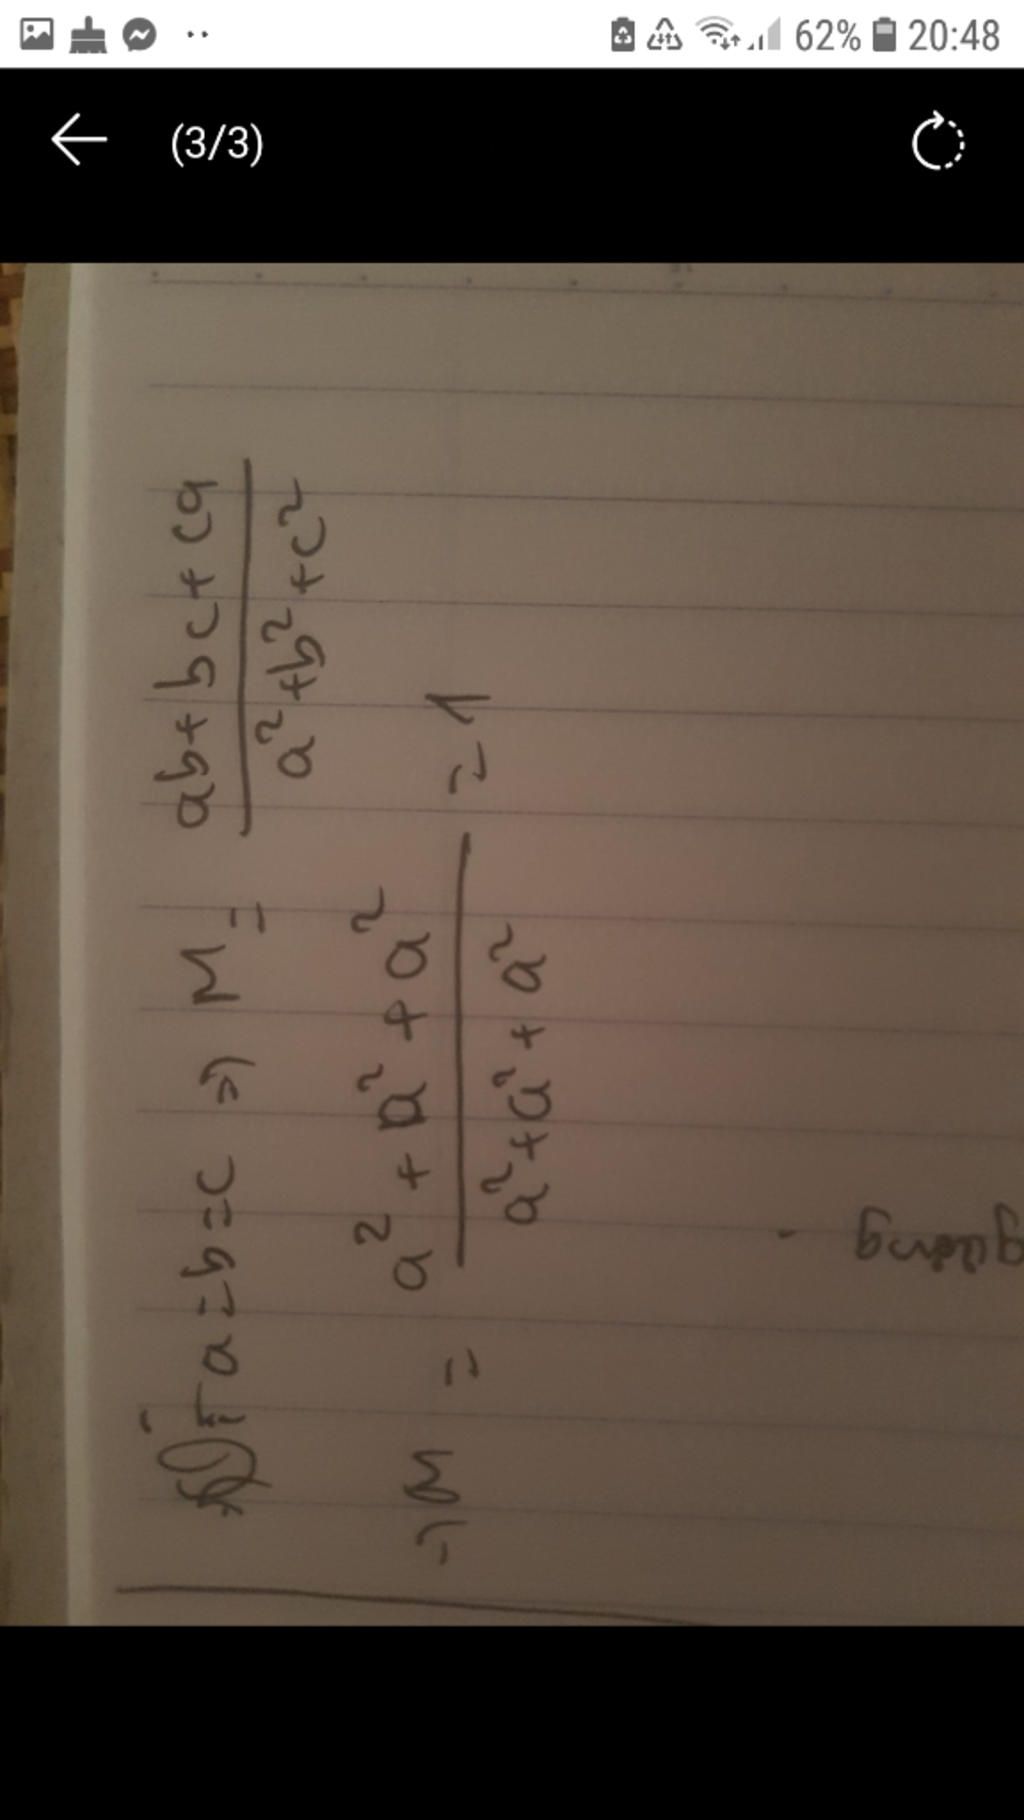 62% 20:48
(3/3)
a=b=c => M = ab+bc+ca / a²+b²+c²
=> M = a²+a²+a² / a²+a²+a² = 1